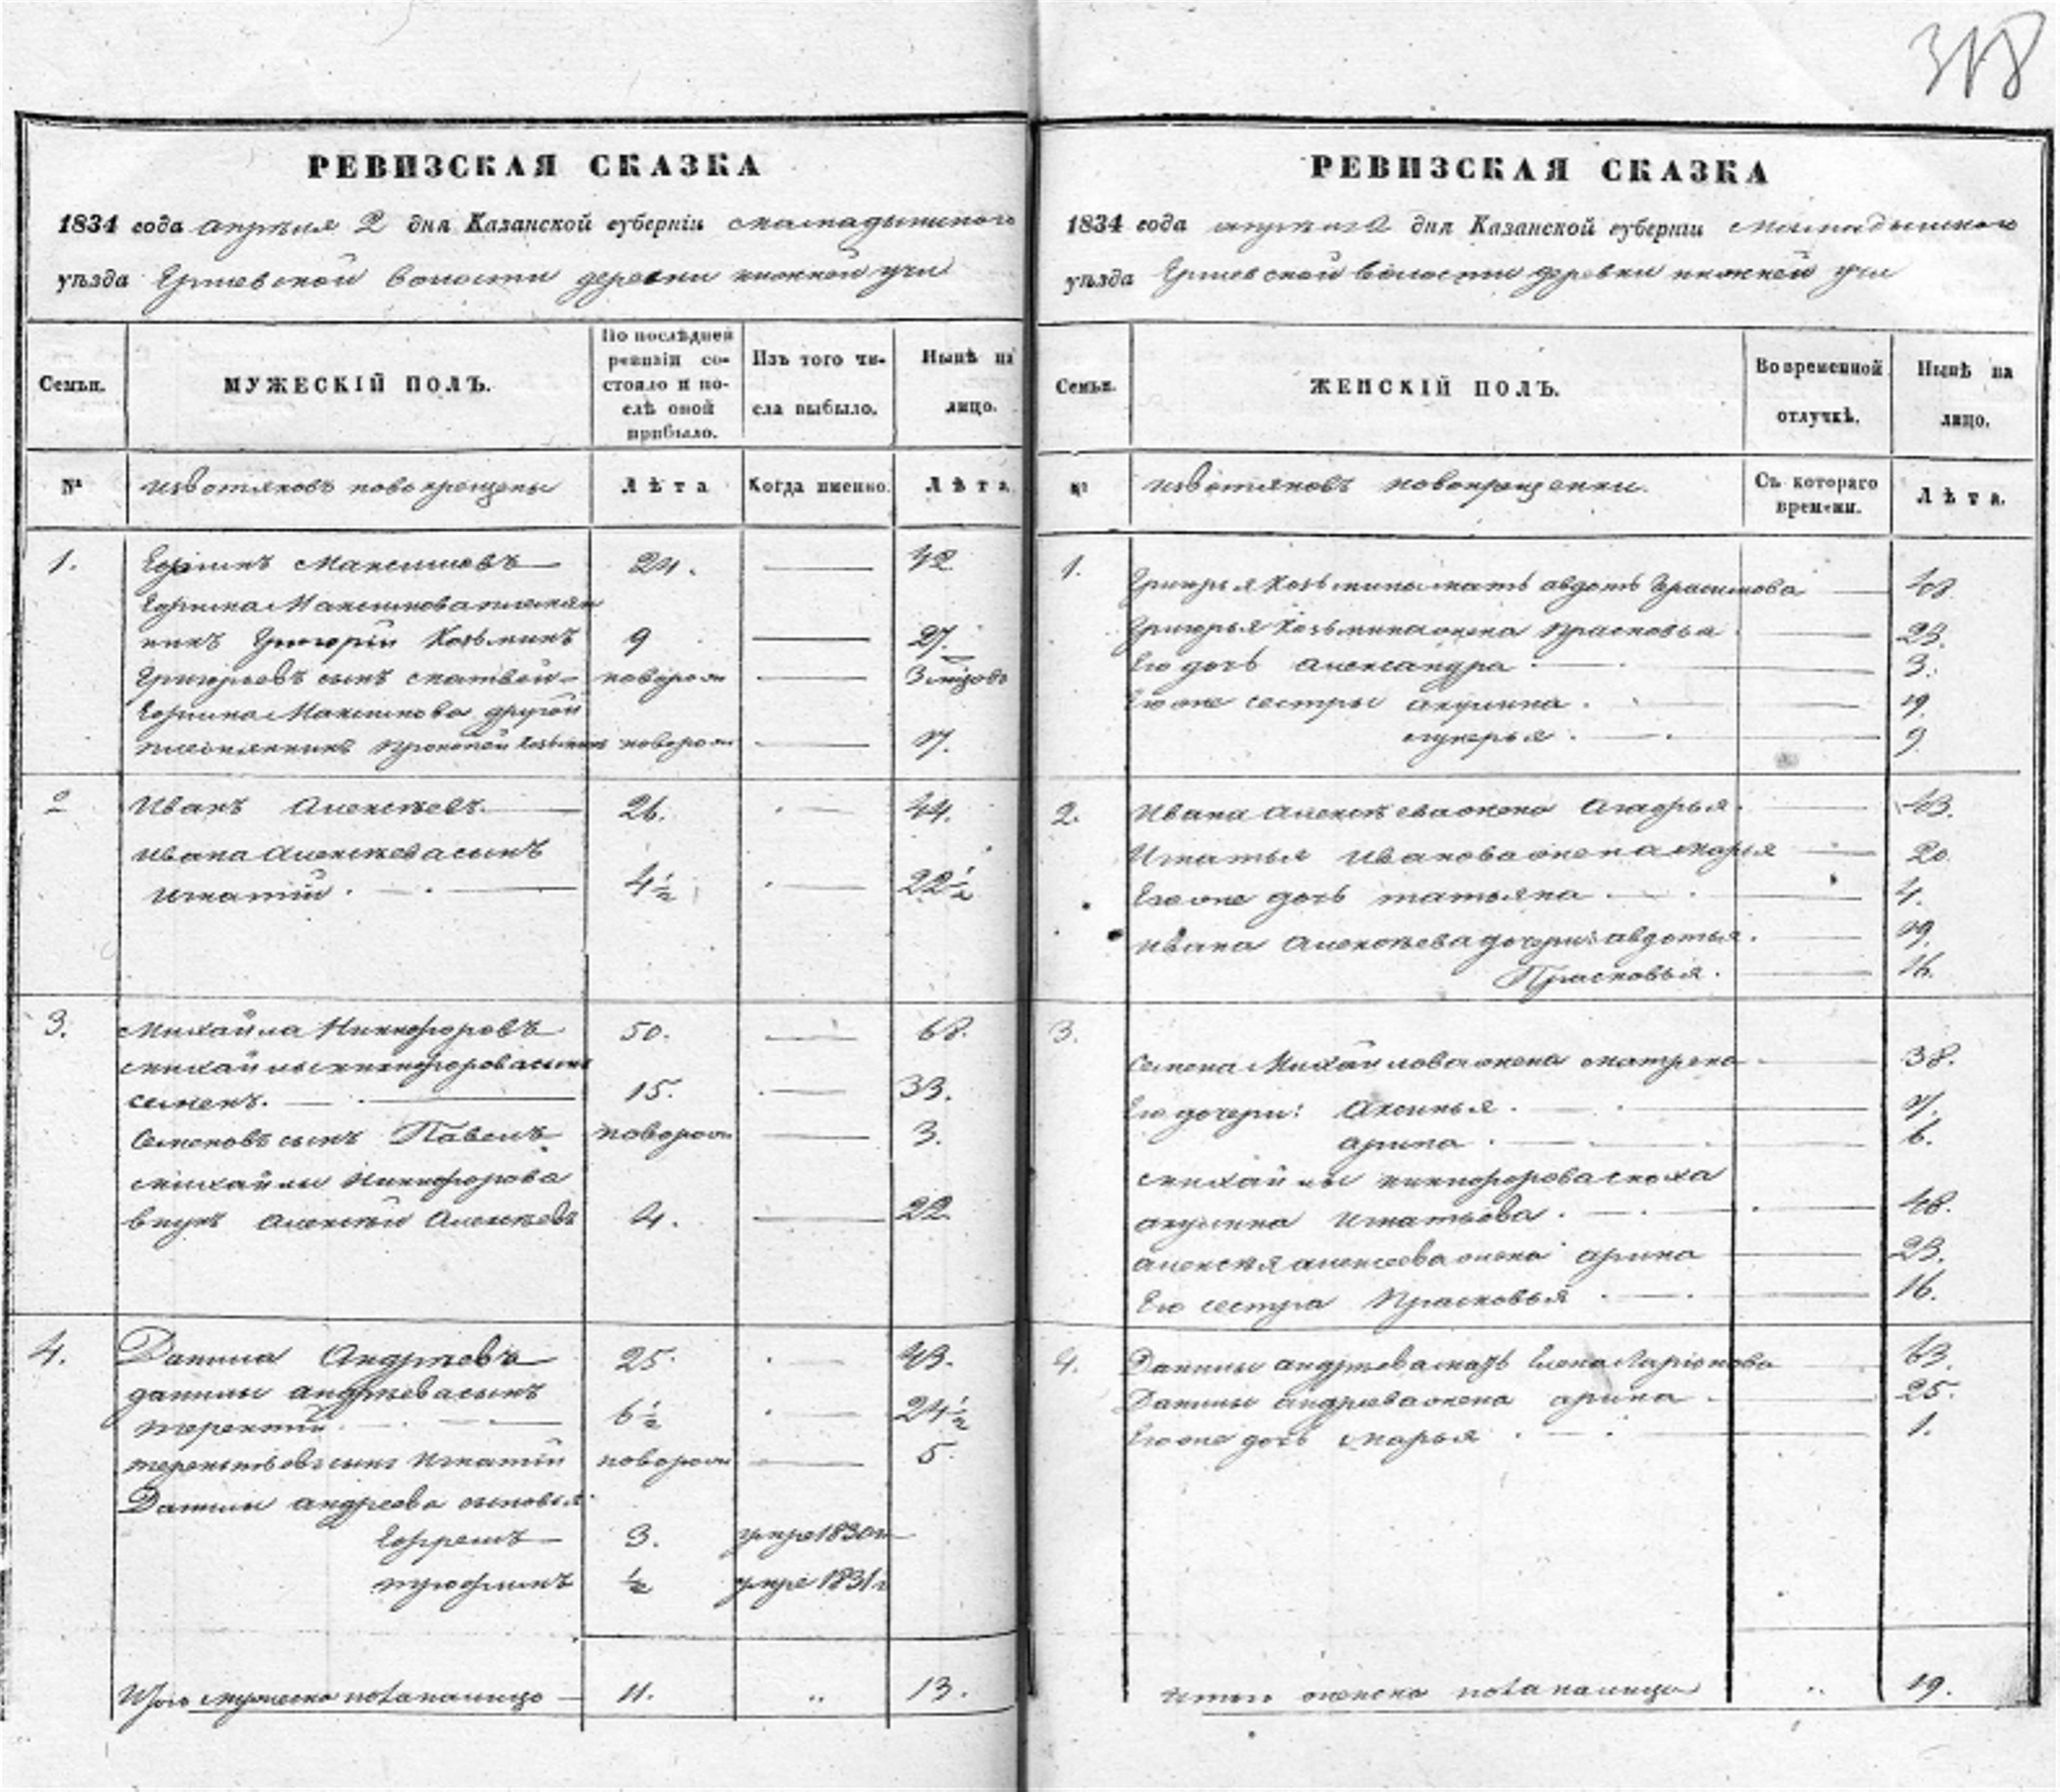 318
РЕВИЗСКАЯ СКАЗКА
1834 года апреля 2 дня Казанской губерніи Мамадышского
уѣзда волости деревни нижней учи
Семьи.
МУЖЕСКІЙ ПОЛЪ.
По послѣдней ревизіи со-
стояло и по-
слѣ оной
прибыло.
Изъ того чи-
сла выбыло.
Нынѣ на
лицо.
№ извотяковъ новокрещены
Лѣта
Когда именно.
Лѣта
1. Максимовъ 24. 42
Максимова племян
никъ Григорій Козьминъ 9 27.
Григорьевъ сынъ Матвей новорож 3 мцовъ
Максимова другой
племянникъ Прокопей Козьминъ новорож 17.
2 Иванъ Алексѣевъ 26. 44.
Ивана Алексѣева сынъ
Игнатій 4½ 22½
3. Михайла Никифоровъ 50. 68.
Михайлы Никифорова сынъ
Семенъ. 15. 33.
Семеновъ сынъ Павелъ новорож 3.
Михайлы Никифорова
внукъ Алексѣй Алексѣевъ 4. 22
4. Данила Андреевъ 25. 43.
Данилы Андреева сынъ
Терентій 6½ 24½
Терентьевъ сынъ Игнатій новорож 5.
Данилы Андреева сыновья
Ефремъ 3. умре 1830 г
Трофимъ ½ умре 1831 г
Итого мужеска пола налицо 11. „ 13.
РЕВИЗСКАЯ СКАЗКА
1834 года апреля 2 дня Казанской губерніи Мамадышского
уѣзда волости деревни нижней учи
Семьи.
ЖЕНСКІЙ ПОЛЪ.
Во временной
отлучкѣ.
Нынѣ на
лицо.
№ извотяковъ новокрещенки.
Съ котораго
времени.
Лѣта.
1. Григорья Козьмина мать Авдотья Герасимова 48
Григорья Козьмина жена Прасковья 23.
Его дочь Александра 3.
Его же сестры Акулина 19.
Лукерья 9
2. Ивана Алексѣева жена 43.
Игнатья Иванова жена Марья 20.
Его же дочь Татьяна 4.
Ивана Алексѣева дочери: Авдотья 19.
Прасковья. 16.
3. Семена Михайлова жена Матрена 38.
Его дочери: Аксинья. 17.
Арина 6.
Михайлы Никифорова сноха
Акулина Игнатьева. 48.
Алексѣя Алексеева жена Арина 23.
Его сестра Прасковья 16.
4. Данилы Андреева мать Елена Ларіонова 63.
Данилы Андреева жена Арина 25.
Его же дочь Марья 1.
Итого женска пола налицо „ 19.